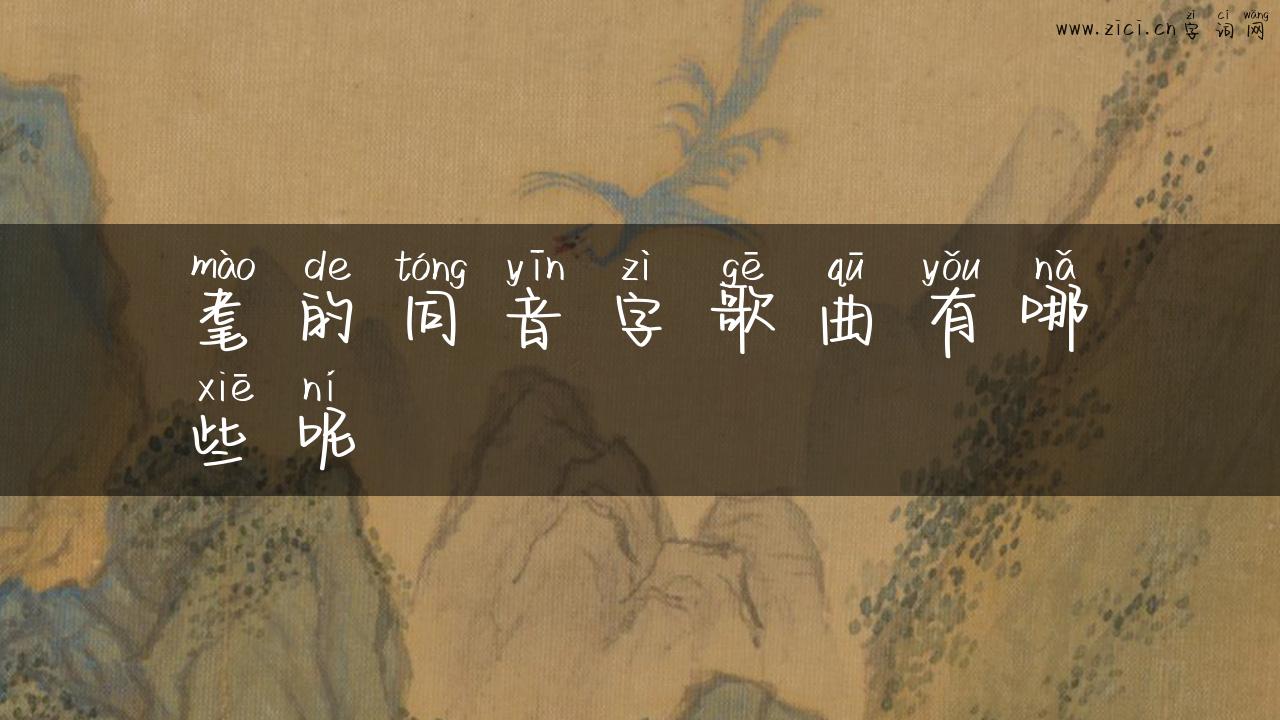 zì cí wǎng
www.zici.cn字词网
mào de tóng yīn zì gē qū yǒu nǎ
耄的同音字歌曲有哪
xiē ní
些呢